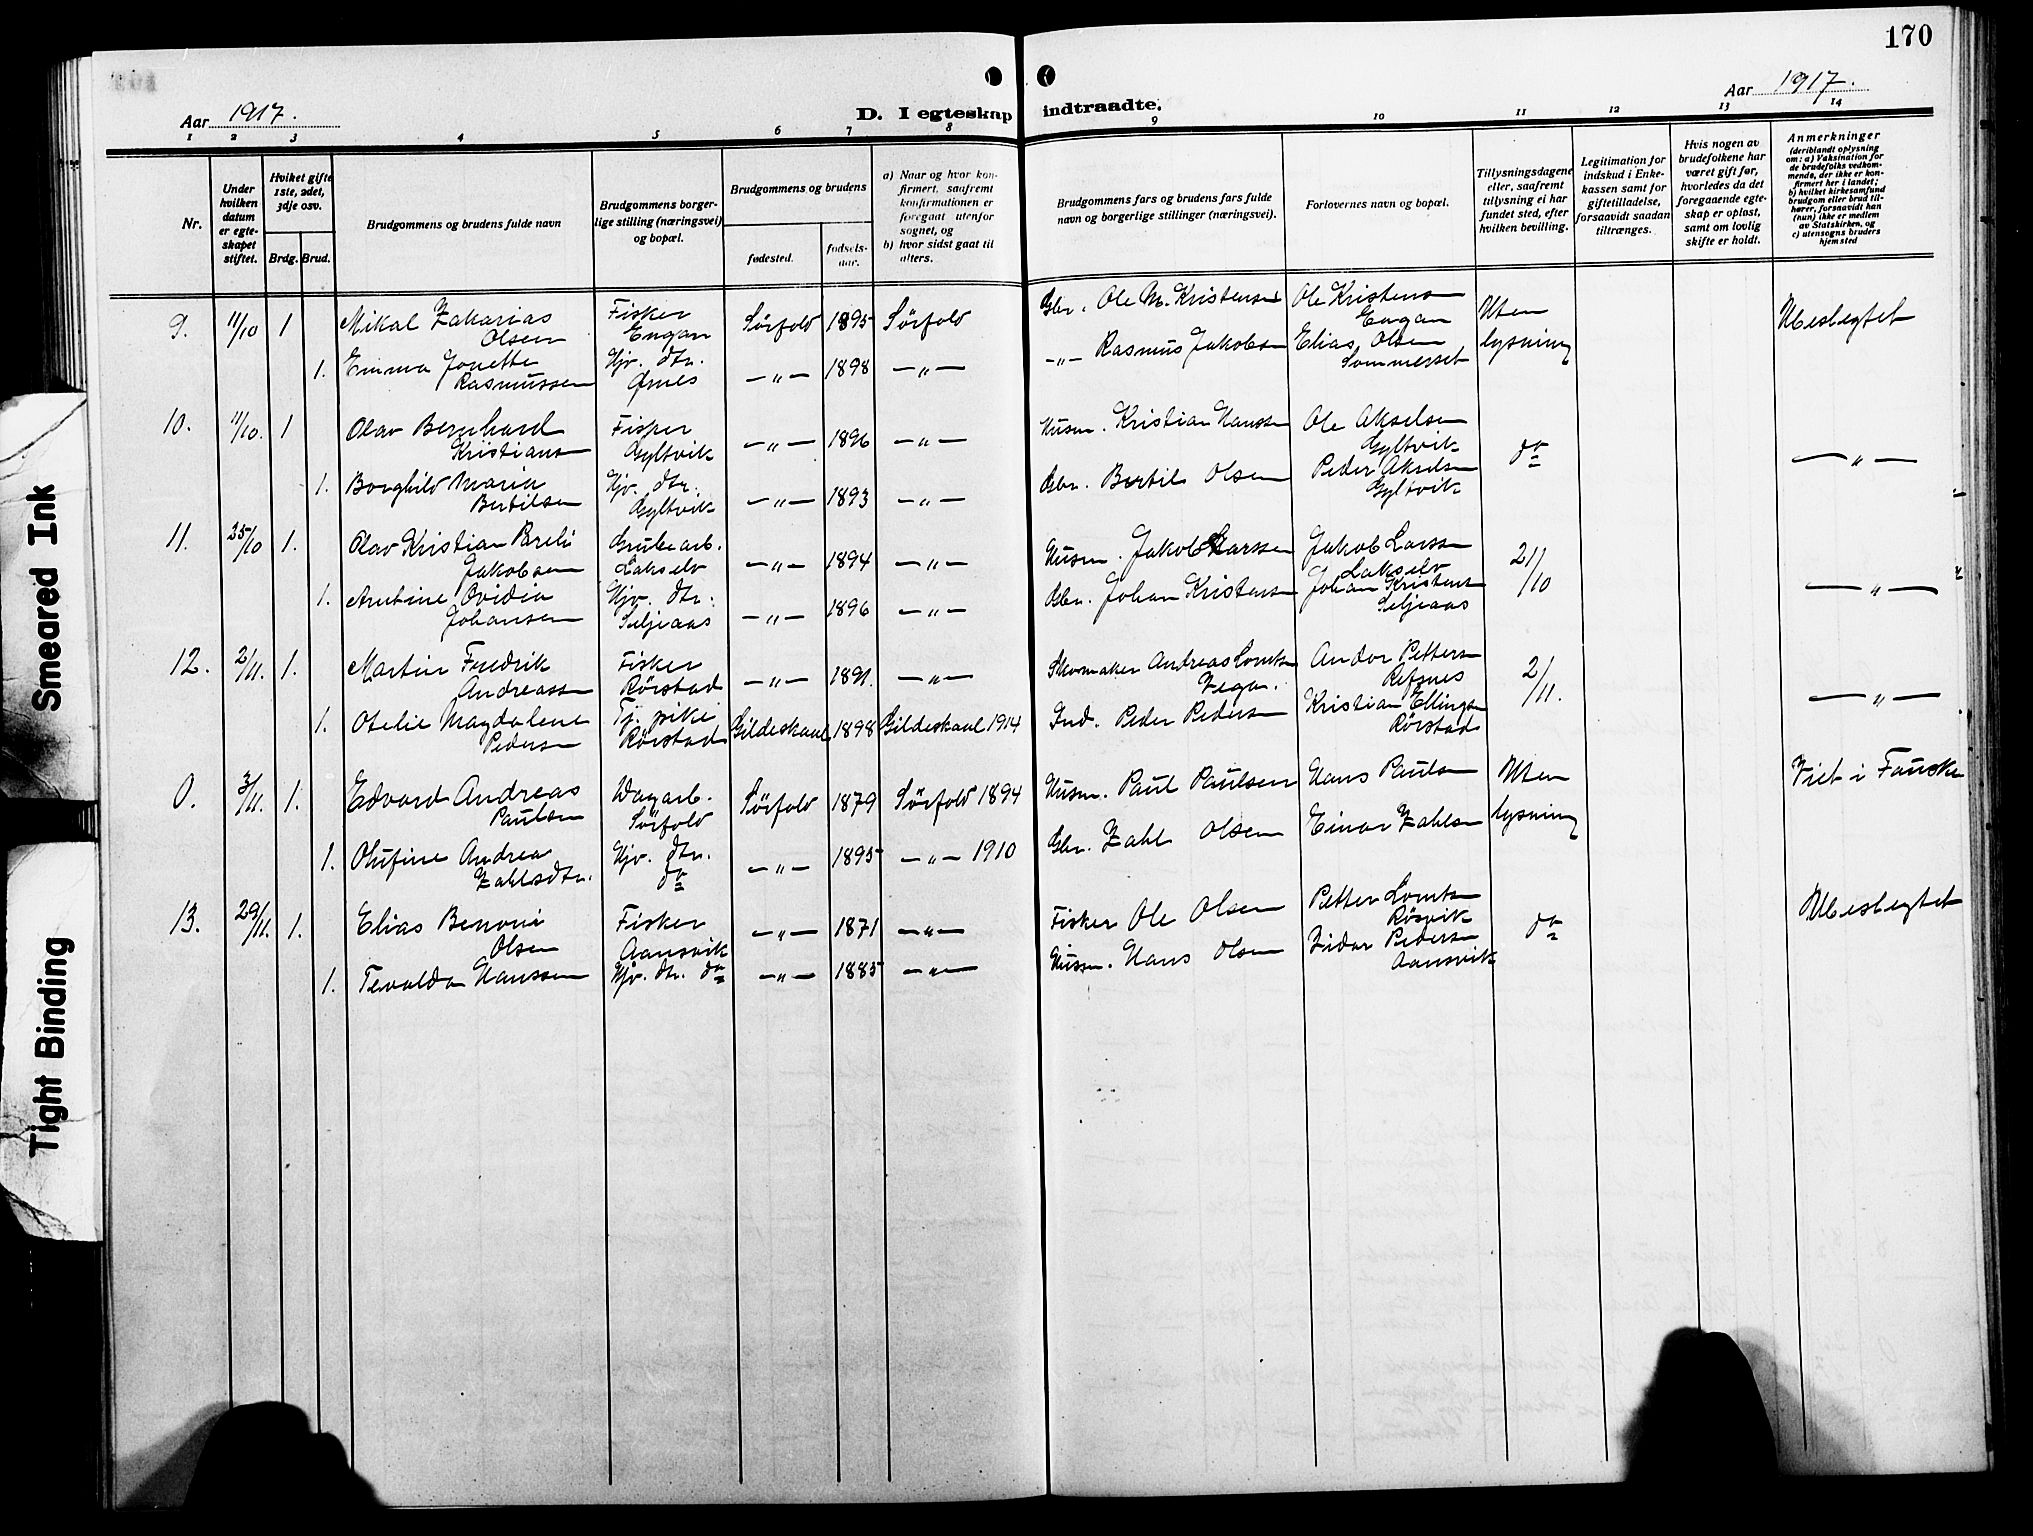 170
Aar 1917.
D. I egteskap indtraadte.
Aar 1917.
1 2 3 4 5 6 7 8 9 10 11 12 13 14
Nr.
Under hvilken datum er egteskapet stiftet.
Hvilket gifte 1ste, 2det, 3dje osv.
Brdg. Brud.
Brudgommens og brudens fulde navn
Brudgommens borgerlige stilling (næringsvei) og bopæl.
Brudgommens og brudens
fødested.
fødselsaar.
a) Naar og hvor konfirmert, saafremt konfirmationen er foregaat utenfor sognet, og
b) hvor sidst gaat til alters.
Brudgommens fars og brudens fars fulde navn og borgerlige stillinger (næringsvei).
Forlovernes navn og bopæl.
Tillysningsdagene eller, saafremt tillysning ei har fundet sted, efter hvilken bevilling.
Legitimation for indskud i Enkekassen samt for giftetilladelse, forsaavidt saadan tiltrænges.
Hvis nogen av brudefolkene har været gift før, hvorledes da det foregaaende egteskap er opløst, samt om lovlig skifte er holdt.
Anmerkninger
(deriblandt oplysning om: a) Vaksination for de brudefolks vedkommende, der ikke er konfirmert her i landet; b) hvilket kirkesamfund brudgom eller brud tilhører, forsaavidt han (hun) ikke er medlem av Statskirken, og c) utensogns bruders hjemsted
9. 11/10 1 Mikal Zakarias Olsen Fisker Engan Sørfold 1895 Sørfold Gbr. Ole M. Kristensen Ole Kristensen Engan Uten lysning Ubeslegtet
1. Emma Jonette Rasmussen Gjv. dtr. Øines —„— 1898 —„— —„— Rasmus Jakobsen Elias Olsen Sommerset
10. 11/10. 1 Olav Bernhard Kristiansen Fisker Gyltvik —„— 1896 —„— Husm. Kristian Hanssen Ole Akselsen Gyltvik do —„—
1. Borghild Maria Bertilsen Gjv. dtr. Gyltvik —„— 1893 —„— Gbr. Bertil Olsen Peder Akselsen Gyltvik
11. 25/10 1. Olav Kristian Jakobsen Grubearb. Lakselv —„— 1894 —„— Husm. Jakob Larssen Jakob Larssen Lakselv 21/10 —„—
1. Ovidia Johansen Gjv. dtr. Seljeaas —„— 1896 —„— Gbr. Johan Kristensen Johan Kristensen Seljeaas
12. 2/11. 1. Martin Fredrik Andreassen Fisker Rørstad —„— 1891. —„— Skomaker Andreas Andor Pettersen Refsnes 2/11. —„—
1. Otelie Magdalene Pedersen Tj. pike Rørstad Gildeskaal 1898 Gildeskaal 1914 Ind. Peder Pedersen Kristian Ellingsen Rørstad
0. 3/11. 1. Edvard Andreas Paulsen Dagarb. Sørfold Sørfold 1879 Sørfold 1894 Husm. Paul Paulsen Hans Paulsen Uten lysning Viet i Fauske
1. Olufine Andrea Zahlsdtr. Gjv. dtr. do —„— 1895 —„— 1910 Gbr. Zahl Olsen Einar Zahlsen
13. 29/11. 1. Elias Benoni Olsen Fisker Aansvik —„— 1871 —„— Fisker Ole Olsen Petter Røsvik do Ubeslegtet
1. Tevalda Hanssen Gjv. dtr. do —„— 1885 —„— Husm. Hans Olsen Pedersen Aansvik
Smeared Ink
Tight Binding